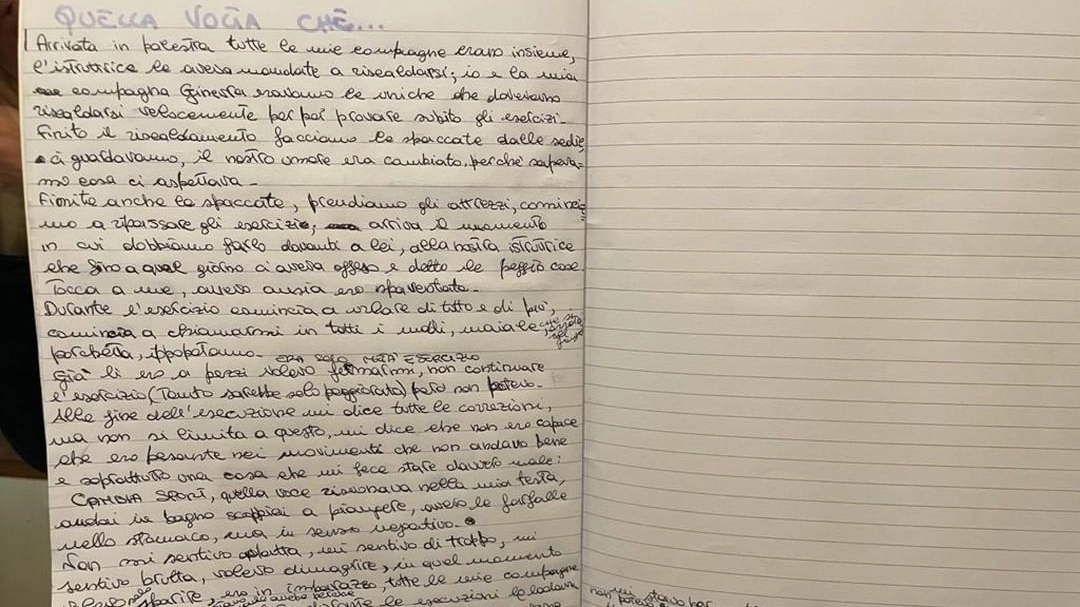 QUELLA VOLTA CHE...
Arrivata in palestra tutte le mie compagne erano insieme,
l'istruttrice le aveva mandate a riscaldarsi; io e la mia
compagna Ginevra eravamo le uniche che dovevano
riscaldarsi velocemente per poi provare subito gli esercizi.
Finito il riscaldamento facciamo le spaccate dalle sedie,
ci guardavamo, il nostro umore era cambiato, perché sapeva=
mo cosa ci aspettava.
Finite anche le spaccate, prendiamo gli attrezzi, comincia=
mo a ripassare gli esercizi, arriva il momento
in cui dobbiamo farlo davanti a lei, alla nostra istruttrice
che fino a quel giorno ci aveva offeso e detto le peggio cose.
Tocca a me, avevo ansia ero spaventata.
Durante l'esercizio comincia a urlare di tutto e di più,
comincia a chiamarmi in tutti i modi, maiale,
porchetta, ippopotamo. ERA SOLO METÀ ESERCIZIO
Già lì ero a pezzi volevo fermarmi, non continuare
l'esercizio (Tanto sarebbe solo peggiorata) però non potevo.
Alla fine dell'esecuzione mi dice tutte le correzioni,
ma non si limita a questo, mi dice che non ero capace
che ero pesante nei movimenti che non andavo bene
e soprattutto una cosa che mi fece stare davvero male:
CAMBIA SPORT, quella voce risuonava nella mia testa,
andai in bagno scoppiai a piangere, avevo le farfalle
nello stomaco, ma in senso negativo.
Non mi sentivo adatta, mi sentivo di troppo, mi
sentivo brutta, volevo dimagrire, in quel momento
volevo solo sparire, ero in imbarazzo, tutte le mie compagne
durante le esecuzioni le lodava
non mi stavo per